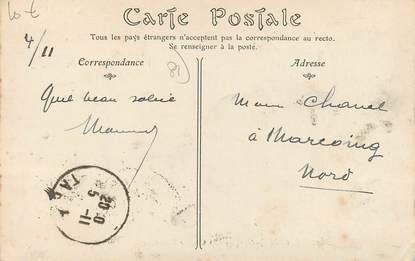 10 €
4/11
81
Carte Postale
Tous les pays étrangers n'acceptent pas la correspondance au recto.
Se renseigner à la poste.
Correspondance
Adresse
Quel beau
Chanel
à Marcoing
Nord
20-0
5
-11